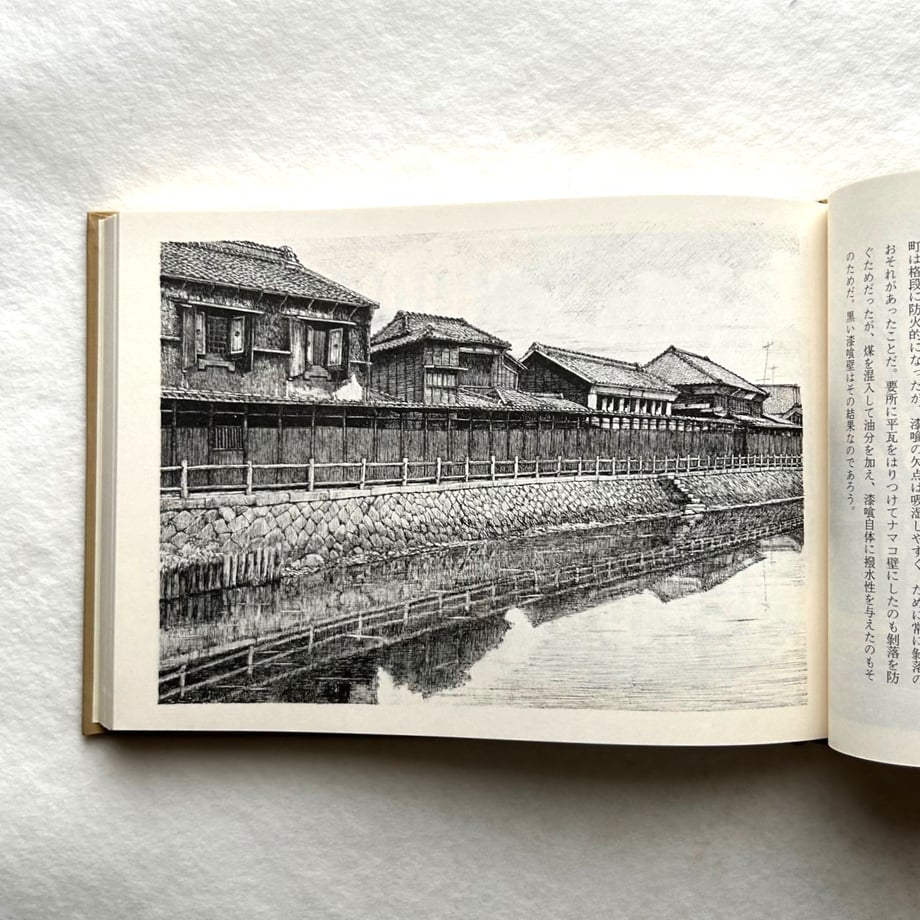 町は格段に防火的になったが、漆喰の欠点は吸湿しやすく、ために常に剝落の
おそれがあったことだ。要所に平瓦をはりつけてナマコ壁にしたのも剝落を防
ぐためだったが、煤を混入して油分を加え、漆喰自体に撥水性を与えたのもそ
のためだ。黒い漆喰壁はその結果なのであろう。